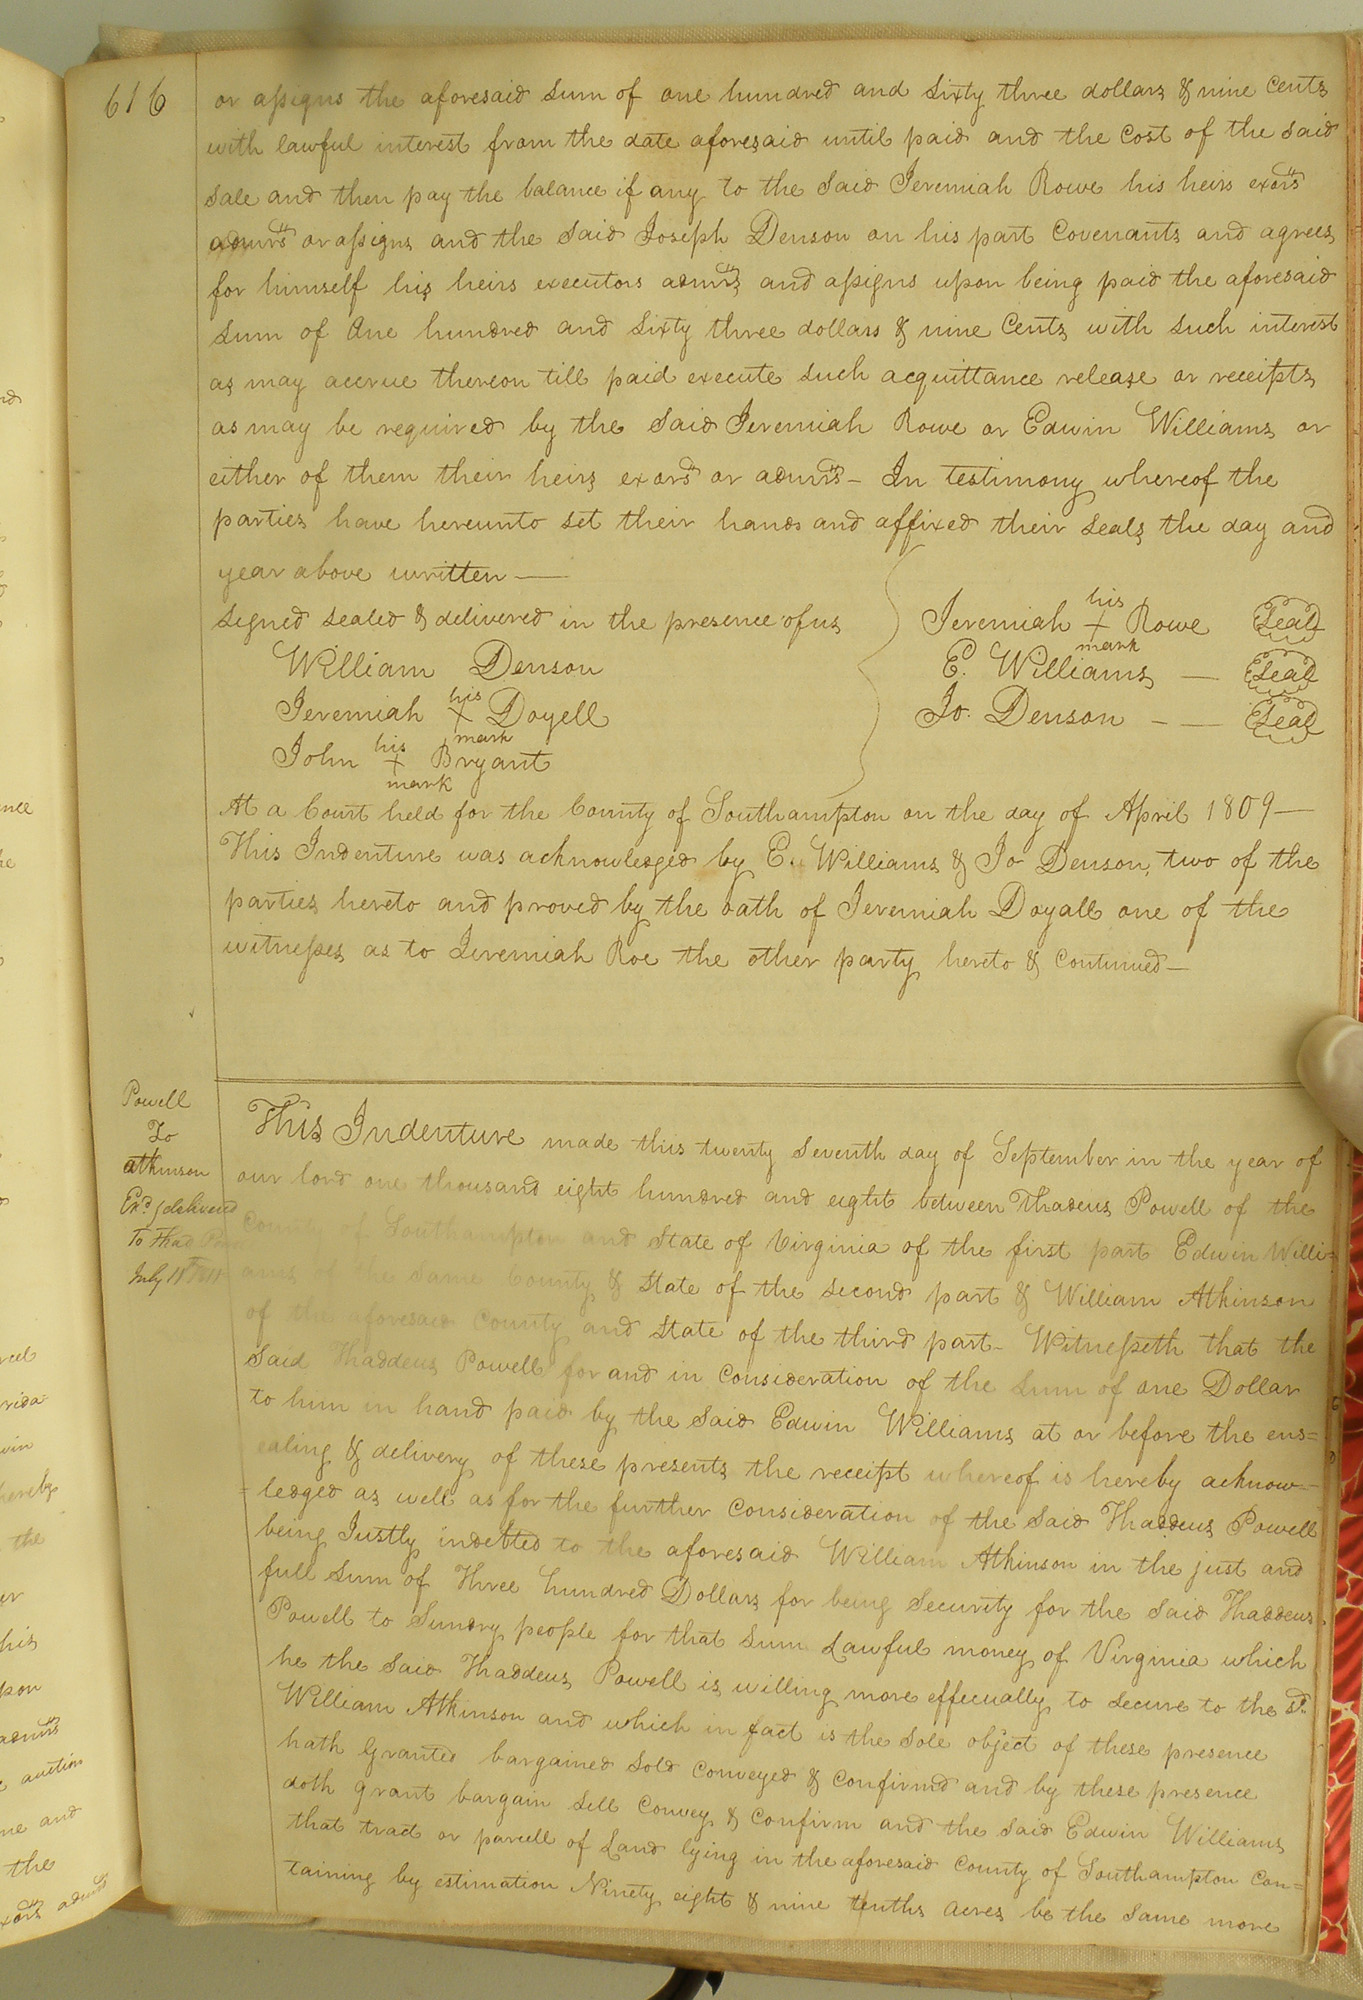 616
or assigns the aforesaid sum of one hundred and sixty three dollars & nine cents
with lawful interest from the date aforesaid until paid and the cost of the said
sale and then pay the balance if any to the said Jeremiah Rowe his heirs exors
admrs or assigns and the said Joseph Denson on his part Covenants and agrees
for himself his heirs executors admrs and assigns upon being paid the aforesaid
sum of One hundred and sixty three dollars & nine Cents with such interest
as may accrue thereon till paid execute such acquittance release or receipts
as may be required by the said Jeremiah Rowe or Edwin Williams or
either of them their heirs exors or admrs – In testimony whereof the
parties have hereunto set their hands and affixed their seals the day and
year above written —
signed sealed & delivered in the presence of us
William Denson
Jeremiah his X mark Doyell
John his + mark Bryant
Jeremiah his + mark Rowe Seal
E. Williams — Seal
Jo. Denson - — Seal
At a Court held for the County of Southampton on the day of April 1809 —
This Indenture was acknowledged by E. Williams & Jo Denson, two of the
parties hereto and proved by the oath of Jeremiah Doyall one of the
witnesses as to Jeremiah Roe the other party hereto & continued —
Powell
To
Atkinson
Exd & delivered
To Thad
July 11th
This Indenture made this twenty seventh day of September in the year of
our lord one thousand eight hundred and eight between Thadeus Powell of the
County of Southampton and State of Virginia of the first part Edwin Willi=
ams of the same County & State of the second part & William Atkinson
of the aforesaid County and State of the third part – Witnesseth that the
said Thaddeus Powell for and in Consideration of the sum of one Dollar
to him in hand paid by the said Edwin Williams at or before the ens=
ealing & delivery of these presents the receipt whereof is hereby acknow=
=ledged as well as for the further Consideration of the said Thaddeus Powell
being Justly indebted to the aforesaid William Atkinson in the just and
full sum of Three hundred Dollars for being Security for the said Thaddeus
Powell to Sundry people for that sum Lawful money of Virginia which
he the said Thaddeus Powell is willing more effecually to secure to the sd.
William Atkinson and which in fact is the sole object of these presence
hath Granted bargained sold Conveyed & Confirmd and by these presence
doth grant bargain sell Convey & Confirm and the said Edwin Williams
that tract or parcell of Land lying in the aforesaid County of Southampton Con=
taining by estimation Ninety eight & nine tenths acres be the same more